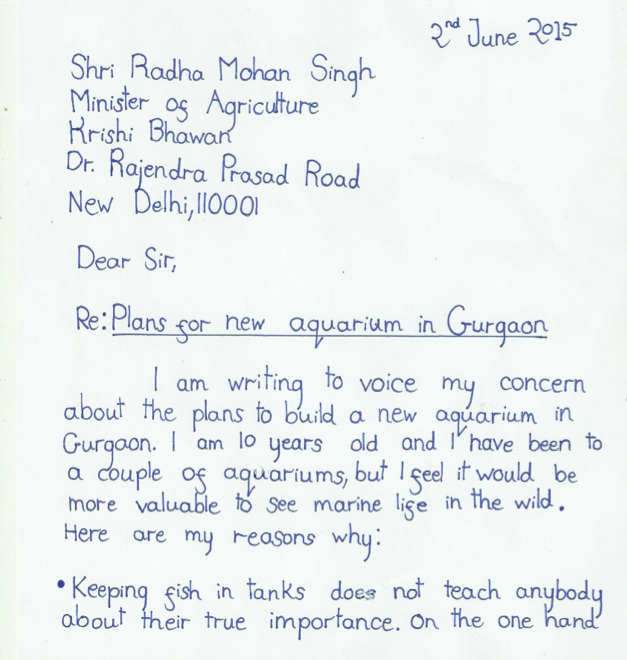 2nd June 2015
Shri Radha Mohan Singh
Minister of Agriculture
Krishi Bhawan
Dr. Rajendra Prasad Road
New Delhi, 110001
Dear Sir,
Re: Plans for new aquarium in Gurgaon
I am writing to voice my concern
about the plans to build a new aquarium in
Gurgaon. I am 10 years old and I have been to
a couple of aquariums, but I feel it would be
more valuable to see marine life in the wild.
Here are my reasons why:
• Keeping fish in tanks does not teach anybody
about their true importance. On the one hand